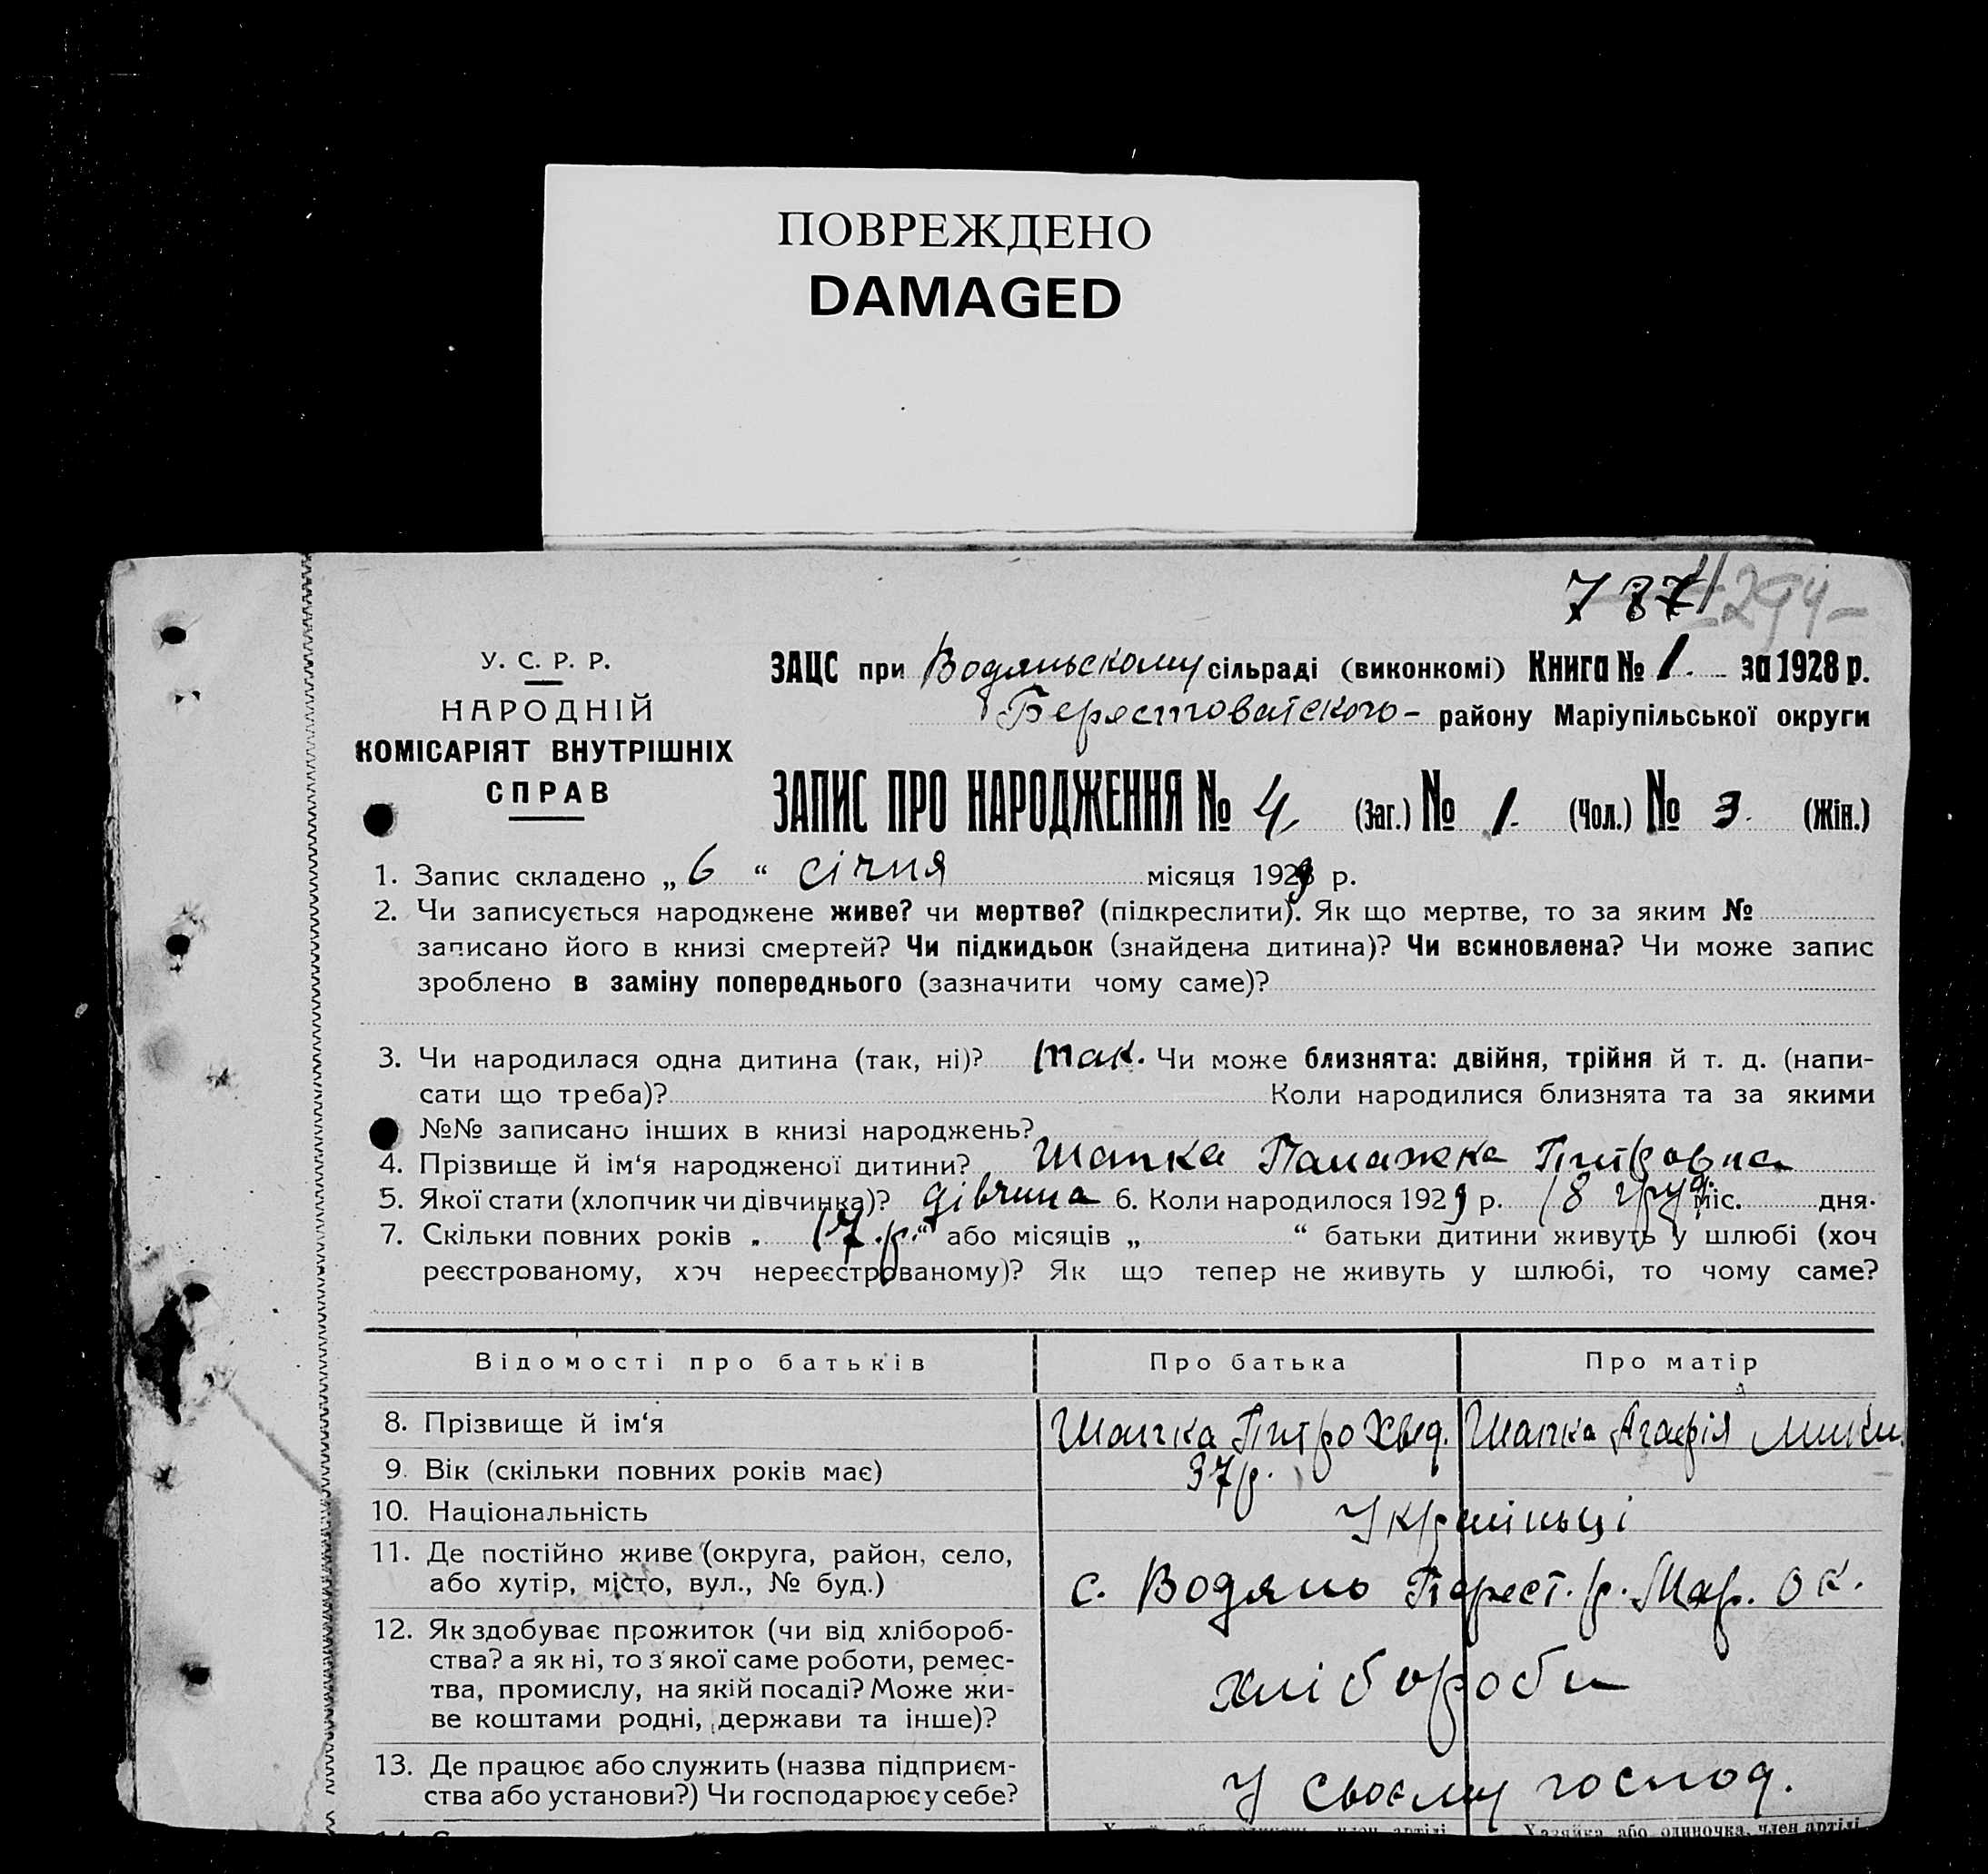 ПОВРЕЖДЕНО
DAMAGED
787
294
У. С. Р. Р.
НАРОДНІЙ
КОМІСАРІЯТ ВНУТРІШНІХ
СПРАВ
ЗАЦС при Водяньскому сільраді (виконкомі) Книга № 1. за 1928 р.
Берестоватского - району Маріупільської округи
ЗАПИС ПРО НАРОДЖЕННЯ № 4 (Заг.) № 1. (Чол.) № 3. (Жін.)
1. Запис складено „ 6 “ січня місяця 1929 р.
2. Чи записується народжене живе? чи мертве? (підкреслити). Як що мертве, то за яким №
записано його в книзі смертей? Чи підкидьок (знайдена дитина)? Чи всиновлена? Чи може запис
зроблено в заміну попереднього (зазначити чому саме)?
3. Чи народилася одна дитина (так, ні)? так. Чи може близнята: двійня, трійня й т. д. (напи-
сати що треба)? Коли народилися близнята та за якими
№№ записано інших в книзі народжень?
4. Прізвище й ім‘я народженої дитини? Шапка Палажка Питровна
5. Якої стати (хлопчик чи дівчинка)? дівчина 6. Коли народилося 1929 р. 18 груд. міс. дня.
7. Скільки повних років „ 17.р. “ або місяців „ “ батьки дитини живуть у шлюбі (хоч
реєстрованому, хоч нереєстрованому)? Як що тепер не живуть у шлюбі, то чому саме?
Відомості про батьків Про батька Про матір
8. Прізвище й ім‘я Шапка Питро Хвид. Шапка Агафія Мики.
9. Вік (скільки повних років має) 37р.
10. Національність Україньці
11. Де постійно живе (округа, район, село,
або хутір, місто, вул., № буд.) с. Водяно Берест. р. Мар. ок.
12. Як здобуває прожиток (чи від хлібороб-
ства? а як ні, то з якої саме роботи, ремес-
тва, промислу, на якій посаді? Може жи- хлібороби
ве коштами родні, держави та інше)?
13. Де працює або служить (назва підприєм-
ства або установи?) Чи господарює у себе? У своєму господ.
Хазяйка або одиночка, член артілі